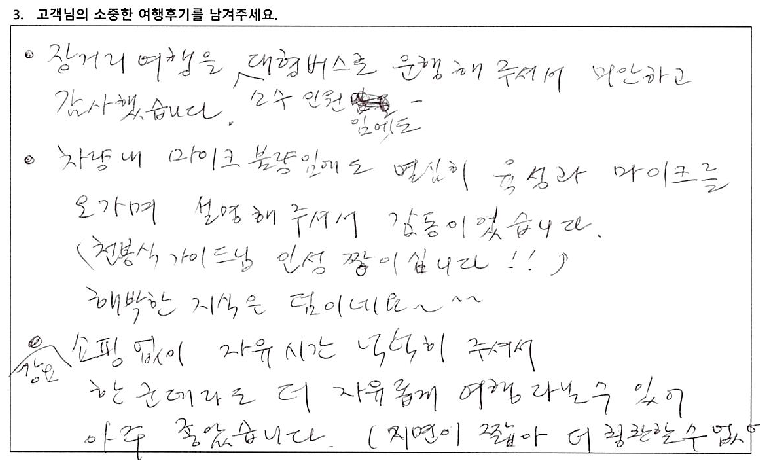 3. 고객님의 소중한 여행후기를 남겨주세요.
• 장거리 여행을 대형버스로 운행해 주셔서 미안하고
감사했습니다. 소수 인원
임에도
• 차량내 마이크 불량임에도 열심히 육성과 마이크를
오가며 설명해 주셔서 감동이었습니다.
(천봉식 가이드님 인성 짱이십니다!!)
해박한 지식은 덤이네요~~~
• 쇼핑 없이 자유시간 넉넉히 주셔서
강요
한군데라도 더 자유롭게 여행 다닐수 있어
아주 좋았습니다. (지면이 짧아 더 칭찬할수 없